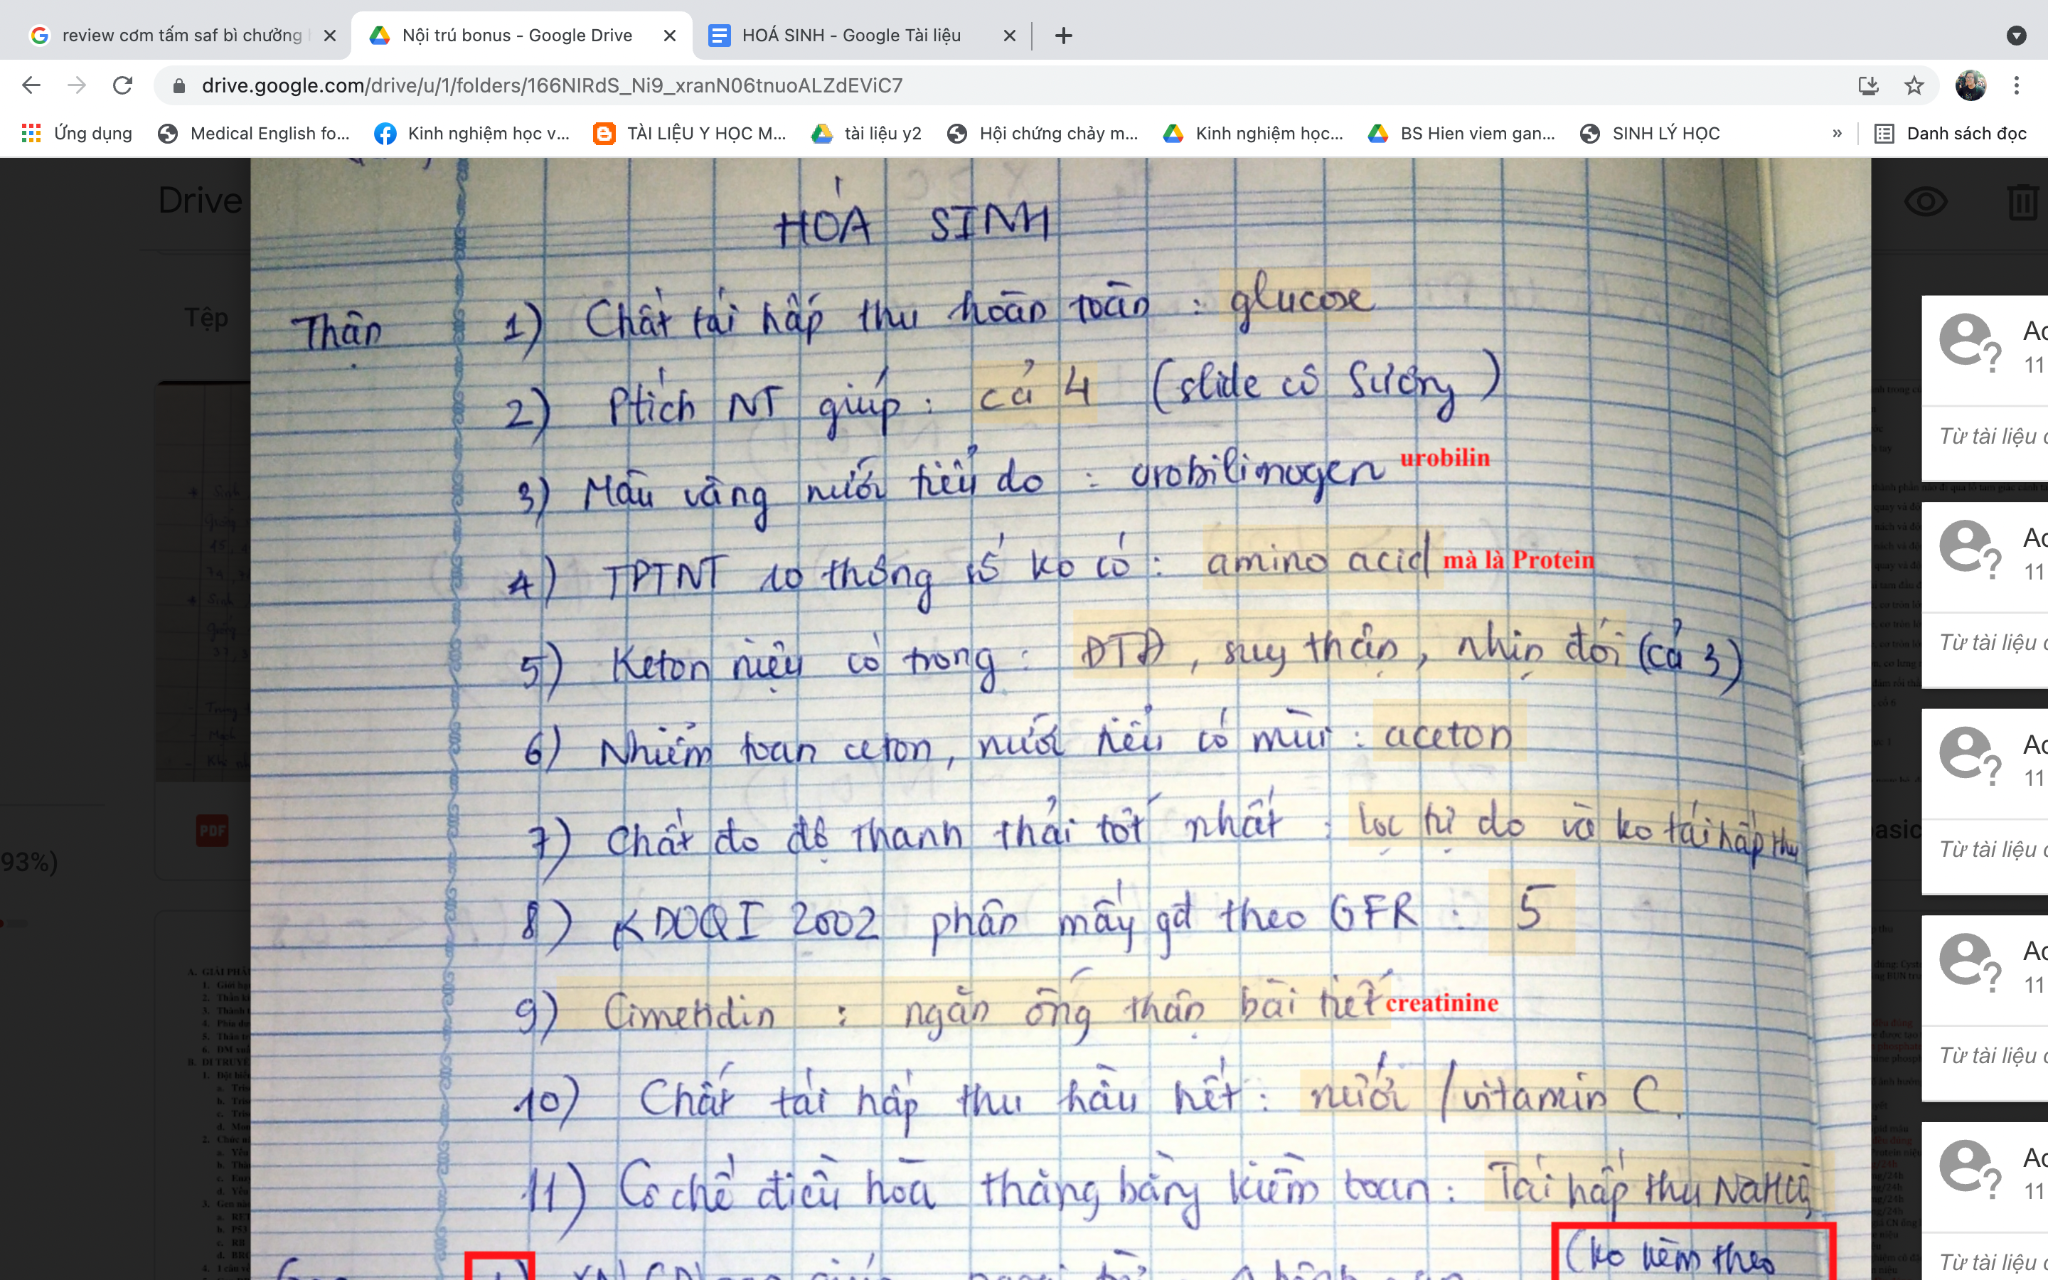 review cơm tấm saf bì chưởng
Nội trú bonus - Google Drive
HOÁ SINH - Google Tài liệu
drive.google.com/drive/u/1/folders/166NlRdS_Ni9_xranN06tnuoALZdEViC7
Ứng dụng
Medical English fo...
Kinh nghiệm học v...
TÀI LIỆU Y HỌC M...
tài liệu y2
Hội chứng chảy m...
Kinh nghiệm học...
BS Hien viem gan...
SINH LÝ HỌC
»
Danh sách đọc
Drive
Tệp
PDF
93%)
HÓA SINH
Thận
1) Chất tái hấp thu hoàn toàn : glucose
2) Ptích NT giúp : cả 4 (slide cô Sương)
3) Màu vàng nước tiểu do : urobilinogen urobilin
4) TPTNT 10 thông số ko có : amino acid mà là Protein
5) Keton niệu có trong : ĐTĐ, suy thận, nhịn đói (cả 3)
6) Nhiễm toan ceton, nước tiểu có mùi : aceton
7) Chất đo độ thanh thải tốt nhất : lọc tự do và ko tái hấp thu
8) KDOQI 2002 phân mấy gđ theo GFR : 5
9) Cimetidin : ngăn ống thận bài tiết creatinine
10) Chất tái hấp thu hầu hết : nước / vitamin C.
11) Cơ chế điều hòa thăng bằng kiềm toan : Tái hấp thu NaHCO3
(ko kèm theo
Từ tài liệu
Từ tài liệu
Từ tài liệu
Từ tài liệu
Từ tài liệu